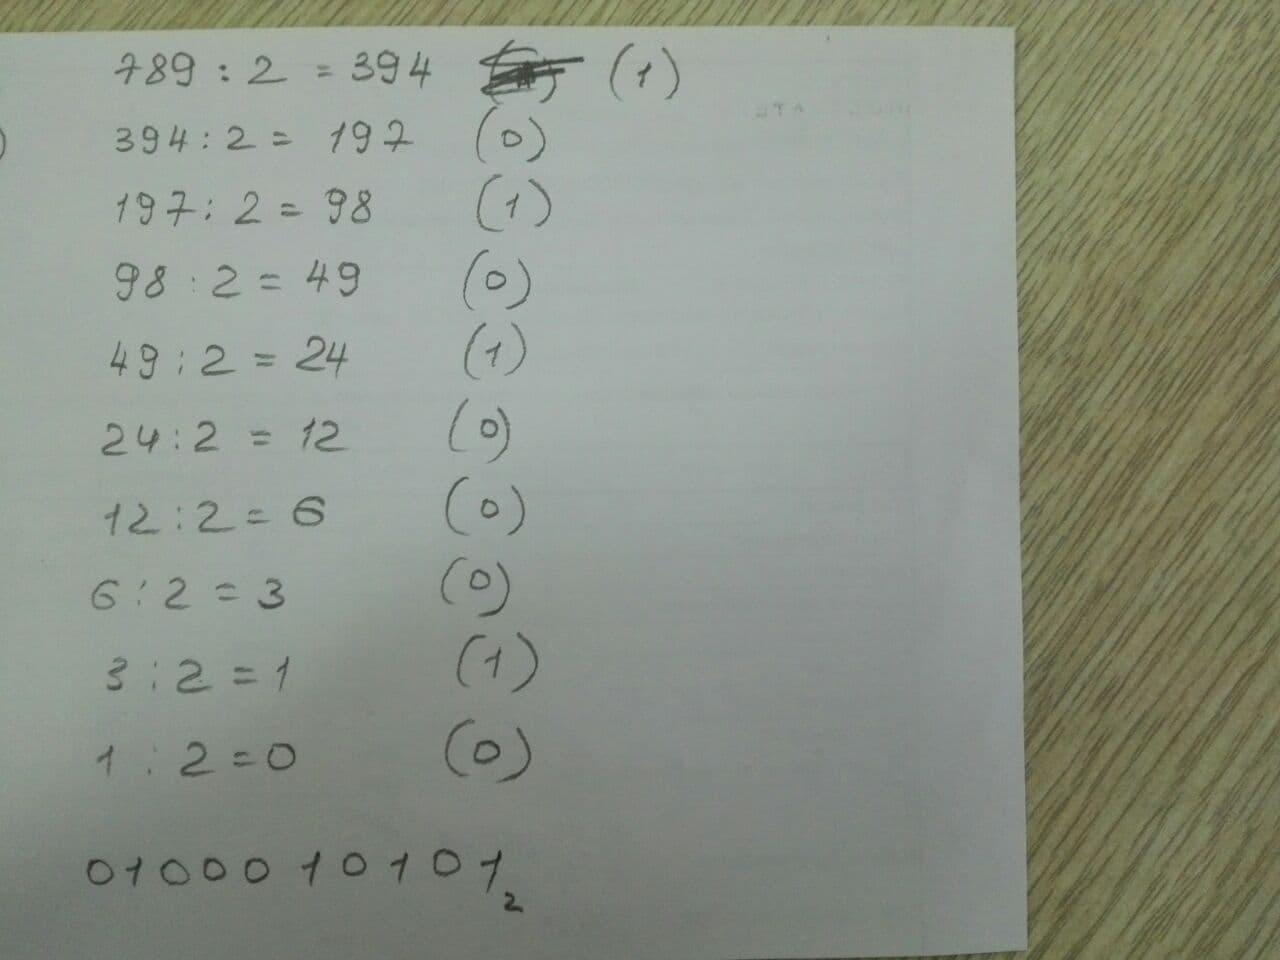 789 : 2 = 394 (1)
394 : 2 = 197 (0)
197 : 2 = 98 (1)
98 : 2 = 49 (0)
49 : 2 = 24 (1)
24 : 2 = 12 (0)
12 : 2 = 6 (0)
6 : 2 = 3 (0)
3 : 2 = 1 (1)
1 : 2 = 0 (0)
0100010101₂